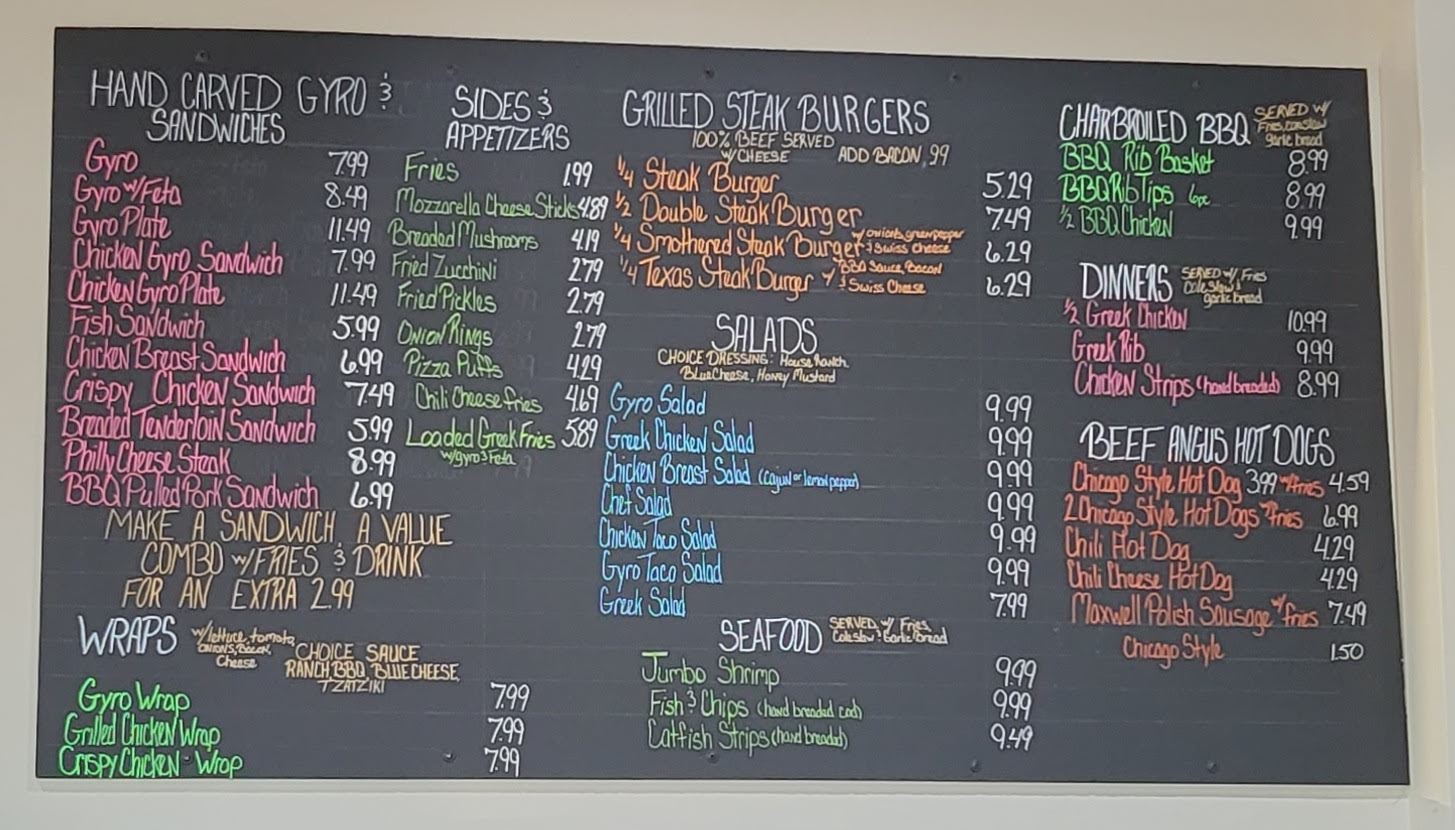 HAND CARVED GYRO &
SANDWICHES
Gyro 7.99
Gyro w/Feta 8.49
Gyro Plate 11.49
Chicken Gyro Sandwich 7.99
Chicken Gyro Plate 11.49
Fish Sandwich 5.99
Chicken Breast Sandwich 6.99
Crispy Chicken Sandwich 7.49
Breaded Tenderloin Sandwich 5.99
Philly Cheese Steak 8.99
BBQ Pulled Pork Sandwich 6.99
MAKE A SANDWICH A VALUE
COMBO w/FRIES & DRINK
FOR AN EXTRA 2.99
WRAPS
w/lettuce, tomato
onions, Bacon,
Cheese
CHOICE SAUCE
RANCH, BBQ, BLUE CHEESE,
TZATZIKI
Gyro Wrap 7.99
Grilled Chicken Wrap 7.99
Crispy Chicken Wrap 7.99
SIDES &
APPETIZERS
Fries 1.99
Mozzarella Cheese Sticks 4.89
Breaded Mushrooms 4.19
Fried Zucchini 2.79
Fried Pickles 2.79
Onion Rings 2.79
Pizza Puffs 4.29
Chili Cheese fries 4.69
Loaded Greek Fries 5.89
w/gyro & Feta
GRILLED STEAK BURGERS
100% BEEF SERVED
w/CHEESE ADD BACON .99
1/4 Steak Burger 5.29
1/2 Double Steak Burger 7.49
1/4 Smothered Steak Burger w/ onions, green pepper & Swiss Cheese 6.29
1/4 Texas Steak Burger w/ BBQ Sauce, Bacon & Swiss Cheese 6.29
SALADS
CHOICE DRESSING: House, Ranch,
Blue Cheese, Honey Mustard
Gyro Salad 9.99
Greek Chicken Salad 9.99
Chicken Breast Salad (Cajun or lemon pepper) 9.99
Chef Salad 9.99
Chicken Taco Salad 9.99
Gyro Taco Salad 9.99
Greek Salad 7.99
SEAFOOD
SERVED w/ Fries,
Coleslaw & Garlic bread
Jumbo Shrimp 9.99
Fish & Chips (hand breaded cod) 9.99
Catfish Strips (hand breaded) 9.49
CHARBROILED BBQ
SERVED w/
Fries, coleslaw
garlic bread
BBQ Rib Basket 8.99
BBQ Rib Tips 6pc 8.99
1/2 BBQ Chicken 9.99
DINNERS
SERVED w/ Fries
Cole Slaw &
garlic bread
1/2 Greek Chicken 10.99
Greek Rib 9.99
Chicken Strips (hand breaded) 8.99
BEEF ANGUS HOT DOGS
Chicago Style Hot Dog 3.99 w/fries 4.59
2 Chicago Style Hot Dogs w/fries 6.99
Chili Hot Dog 4.29
Chili Cheese Hot Dog 4.29
Maxwell Polish Sausage w/ fries 7.49
Chicago Style 1.50